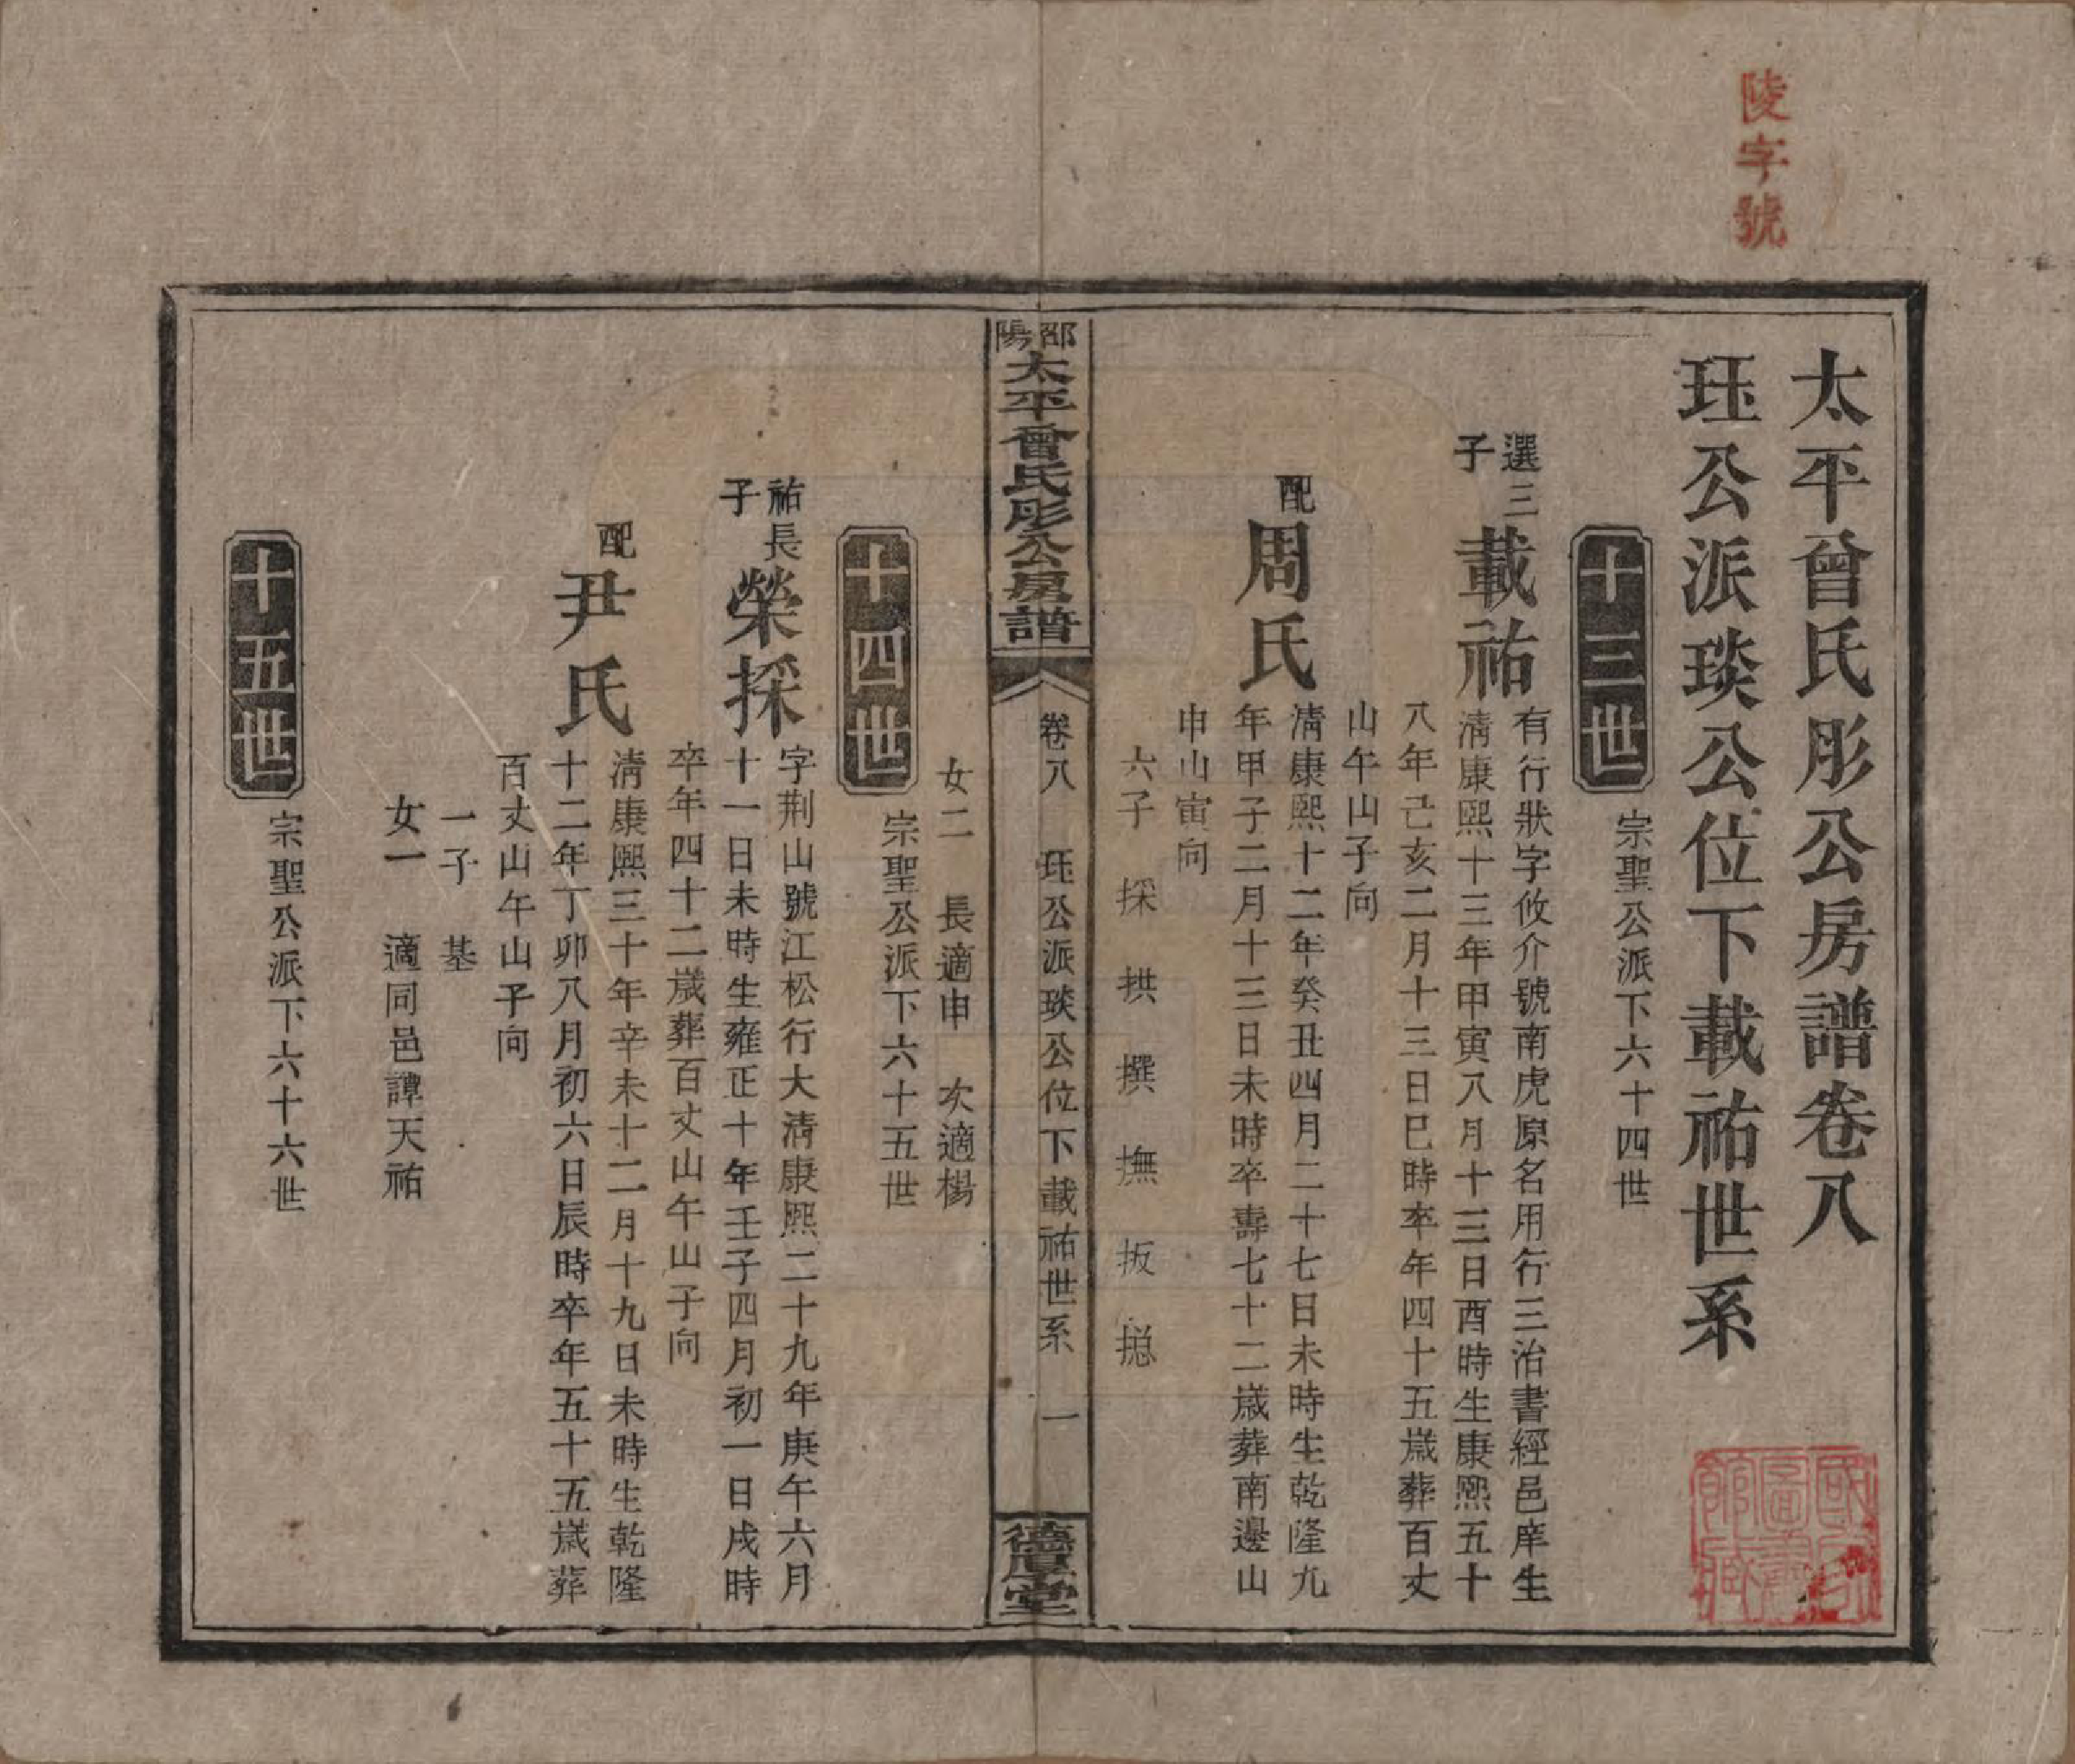 陵字號
太平曾氏彤公房譜卷八
珏公派琰公位下載祐世系
十三世
宗聖公派下六十四世
選三
子
載祐
有行狀字攸介號南虎原名用行三治書經邑庠生
清康熙十三年甲寅八月十三日酉時生康熙五十
八年己亥二月十三日巳時卒年四十五歲葬百丈
山午山子向
配
周氏
清康熙十二年癸丑四月二十七日未時生乾隆九
年甲子二月十三日未時卒壽七十二歲葬南邊山
申山寅向
六子 採 拱 撰 撫 扳 摠
邵陽
太平曾氏彤公房譜
卷八 珏公派琰公位下載祐世系 一
德厚堂
女二 長適申 次適楊
十四世
宗聖公派下六十五世
祐長
子
榮採
字荆山號江松行大清康熙二十九年庚午六月
十一日未時生雍正十年壬子四月初一日戌時
卒年四十二歲葬百丈山午山子向
配
尹氏
清康熙三十年辛未十二月十九日未時生乾隆
十二年丁卯八月初六日辰時卒年五十五歲葬
百丈山午山子向
一子 基
女一 適同邑譚天祐
十五世
宗聖公派下六十六世